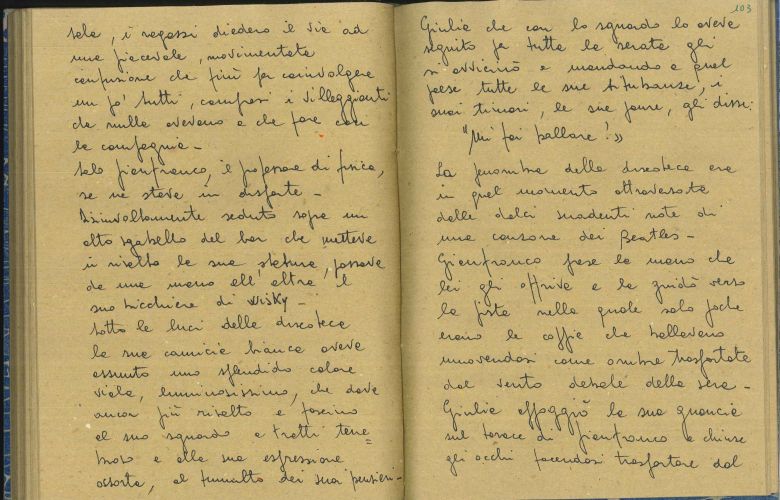 sole, i ragazzi diedero il via ad
una piacevole, movimentata
confusione che finì per coinvolgere
un po' tutti, compresi i villeggianti
che nulla avevano a che fare con
la compagnia -
Solo Gianfranco, il professore di fisica,
se ne stava in disparte -
Disinvoltamente seduto sopra un
alto sgabello del bar che metteva
in risalto la sua statura, passava
da una mano all'altra il
suo bicchiere di wisky -
Sotto le luci della discoteca
la sua camicia bianca aveva
assunto uno splendido colore
viola, luminosissimo, che dava
ancor più risalto e fascino
al suo sguardo a tratti tene=
broso e alla sua espressione
assorta, al tumulto dei suoi pensieri -
103
Giulia che con lo sguardo lo aveva
seguito per tutta la serata gli
si avvicinò e mandando a quel
paese tutte le sue titubanze, i
suoi timori, le sue paure, gli disse:
"Mi fai ballare?»
La penombra della discoteca era
in quel momento attraversata
dalle dolci suadenti note di
una canzone dei Beatles -
Gianfranco prese la mano che
lei gli offriva e la guidò verso
la pista nella quale solo poche
erano le coppie che ballavano
muovendosi come ombre trasportate
dal vento debole della sera -
Giulia appoggiò la sua guancia
sul torace di Gianfranco e chiuse
gli occhi facendosi trasportare dal